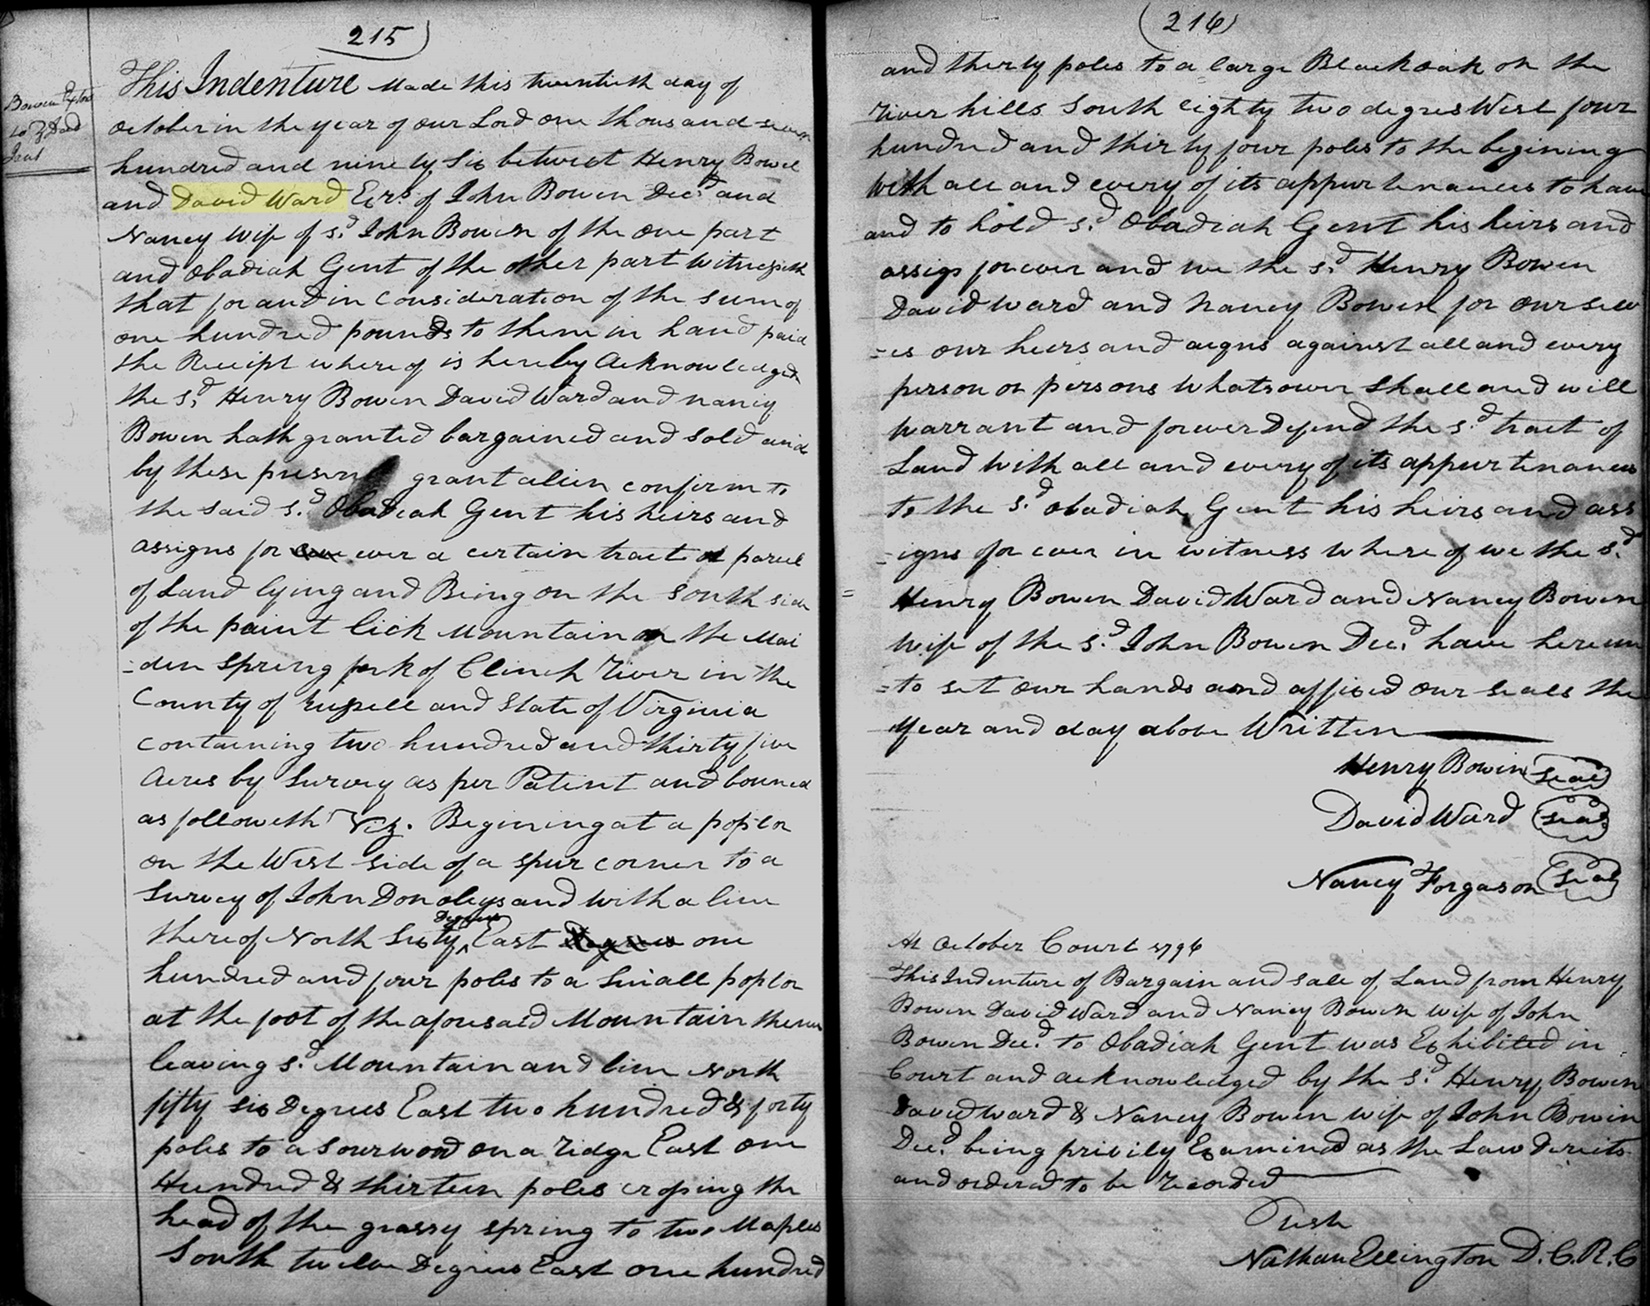 215
Bowen Exrs
to } Deed
Gent
This Indenture Made this twentieth day of
October in the year of our Lord one thousand seven
hundred and ninety six betwixt Henry Bowen
and David Ward Exrs. of John Bowen Decd. and
Nancy wife of sd. John Bowen of the one part
and Obadiah Gent of the other part Witnesseth
that for and in consideration of the sum of
one hundred pounds to them in hand paid
the Receipt where of is hereby Acknowledged
the sd. Henry Bowen David Ward and Nancy
Bowen hath granted bargained and sold and
by these presents grant alien confirm to
the said sd. Obadiah Gent his heirs and
assigns for ever a certain tract or parcel
of Land lying and Being on the South side
of the paint lick Mountain on the Mai
-den Spring fork of Clinch River in the
County of Russell and State of Virginia
containing two hundred and thirty five
Acres by Survey as per Patent and bounded
as followeth Viz. Begining at a poplor
on the West side of a spur corner to a
Survey of John Donoleys and with a line
thereof North Sixty Degrees East Degrees one
hundred and four poles to a Small poplor
at the foot of the aforesaid Mountain thence
leaving sd. Mountain and line North
fifty six Degrees East two hundred & forty
poles to a Sourwood on a ridge East one
Hundred & thirteen poles croping the
head of the grassy spring to two Maples
South twelve Degrees East one hundred
(216)
and therty poles to a large Blackoak on the
river hills South eighty two degres West four
hundred and thirty four poles to the begining
With all and every of its appurtinances to have
and to hold sd. Obadiah Gent his heirs and
assigs forever and we the sd. Henry Bowen
David Ward and Nancy Bowen for oursew
-es our heirs and aigns against all and every
person or persons Whatsowen Shall and will
Warrant and forever Defend the sd. tract of
Land With all and every of its appurtinances
to the sd. Obadiah Gent his heirs and ass
-igns for ever in witness where of we the sd.
Henry Bowen David Ward and Nancy Bowen
Wife of the sd. John Bowen Decd. have hereun
-to set our hands and affixed our seals the
Year and day above Written
Henry Bowen Seal
David Ward Seal
Nancy Forgason Seal
At October Court 1796
This Indenture of Bargain and sale of Land from Henry
Bowen David Ward and Nancy Bowen wife of John
Bowen Decd. to Obadiah Gent was Exhibited in
Court and acknowledged by the sd. Henry Bowen
David Ward & Nancy Bowen wife of John Bowen
Decd. being privily Examined as the Law Directs
and ordered to be recorded
Teste
Nathan Ellington D.C.R.C